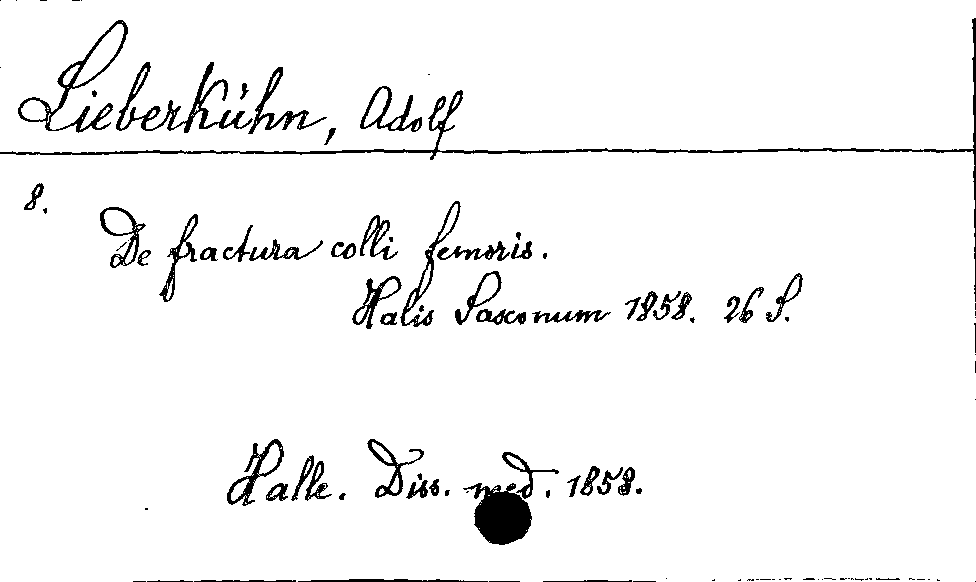 Lieberkühn, Adolf
8.
De fractura colli femoris.
Halis Saxonum 1858. 26 S.
Halle. Diss. med. 1858.